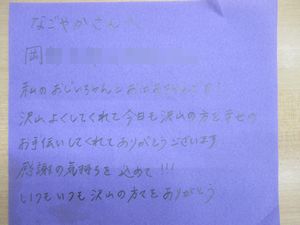 なごやかさんへ
岡
私のおじいちゃんとおばあちゃんを
沢山よくしてくれて今日も沢山の方を幸せの
お手伝いしてくれてありがとうございます
感謝の気持ちを込めて!!!
いつもいつも沢山の方々をありがとう